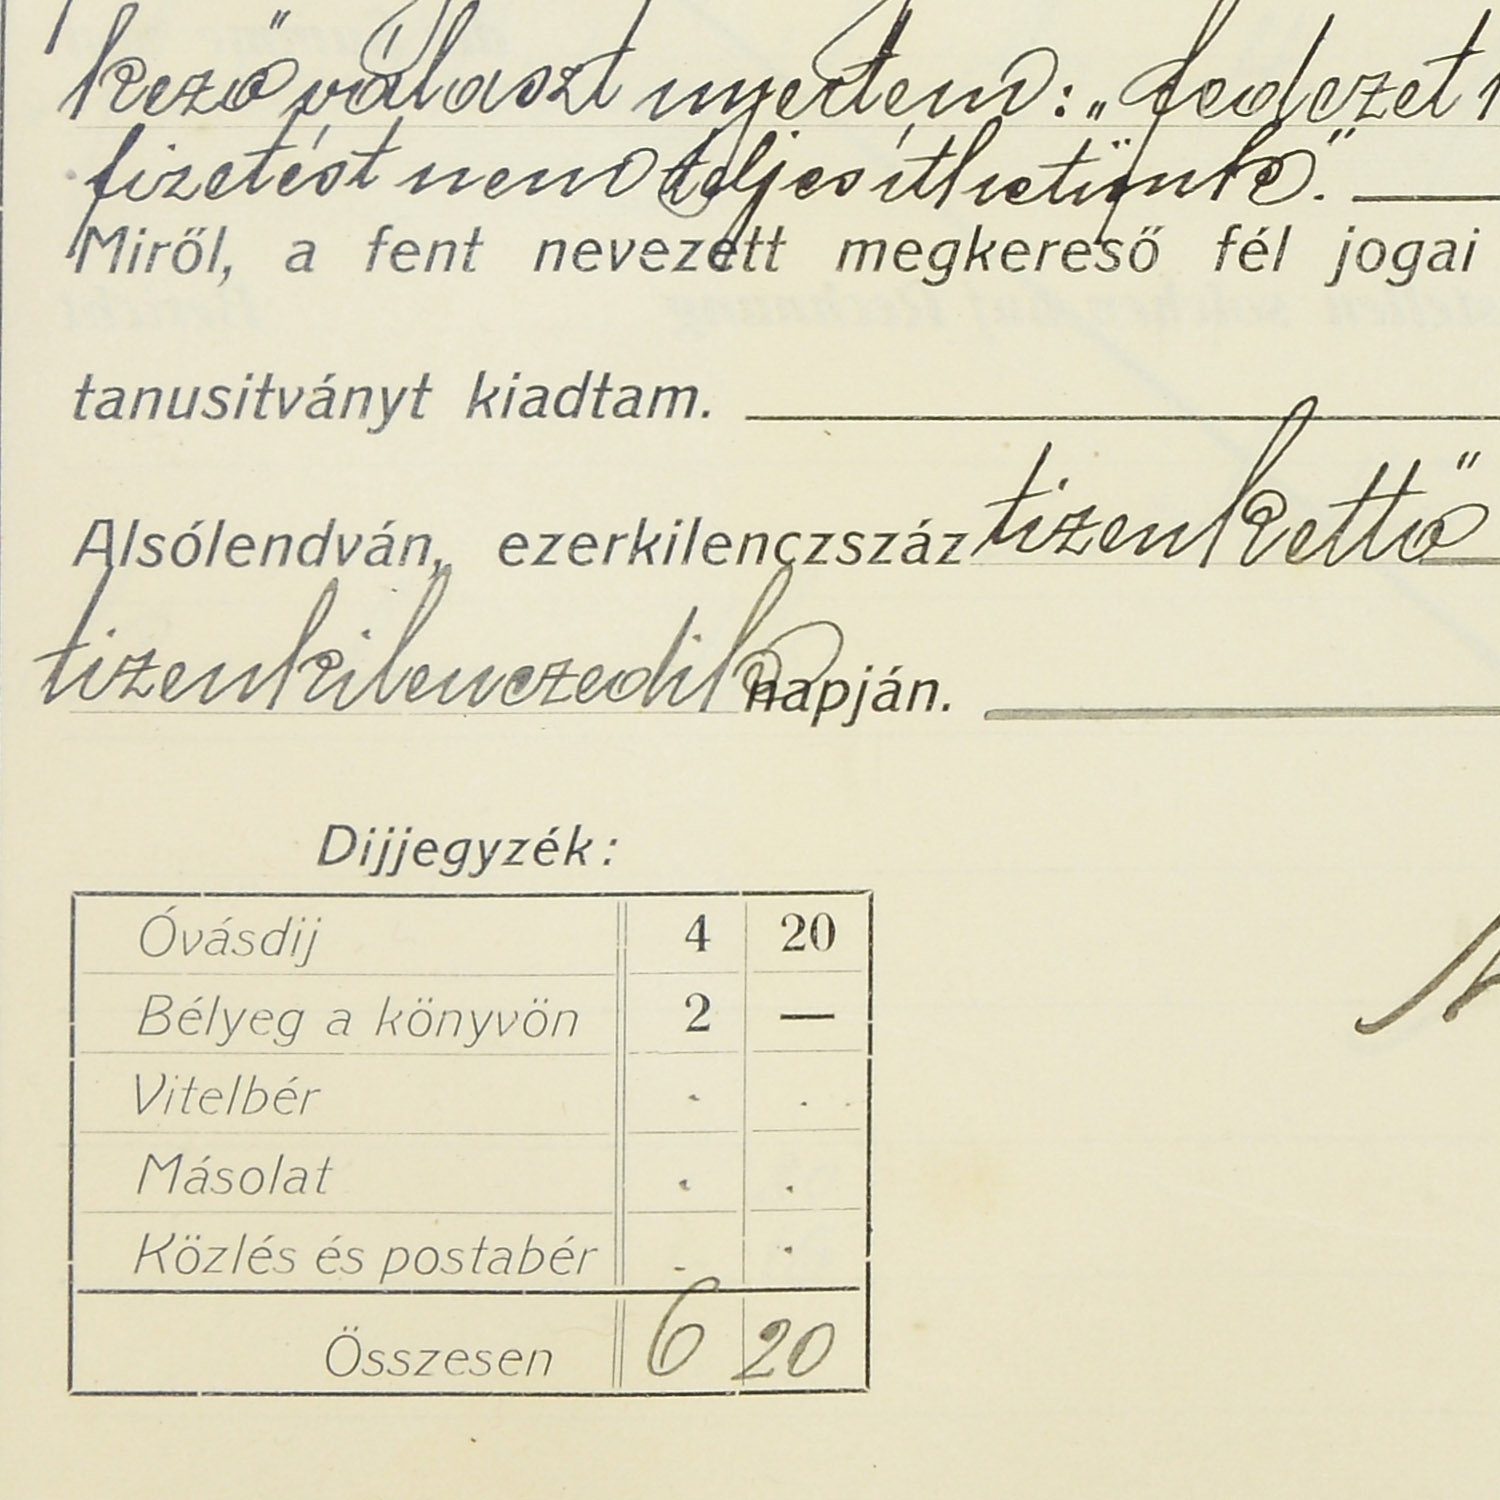 kező választ nyertem: „fedezet
fizetést nem teljesíthetünk."
Miről, a fent nevezett megkereső fél jogai
tanusitványt kiadtam.
Alsólendván, ezerkilenczszáz tizenkettő
tizenkilenczedik napján.
Dijjegyzék:
Óvásdij 4 20
Bélyeg a könyvön 2 —
Vitelbér . .
Másolat . .
Közlés és postabér . .
Összesen 6 20